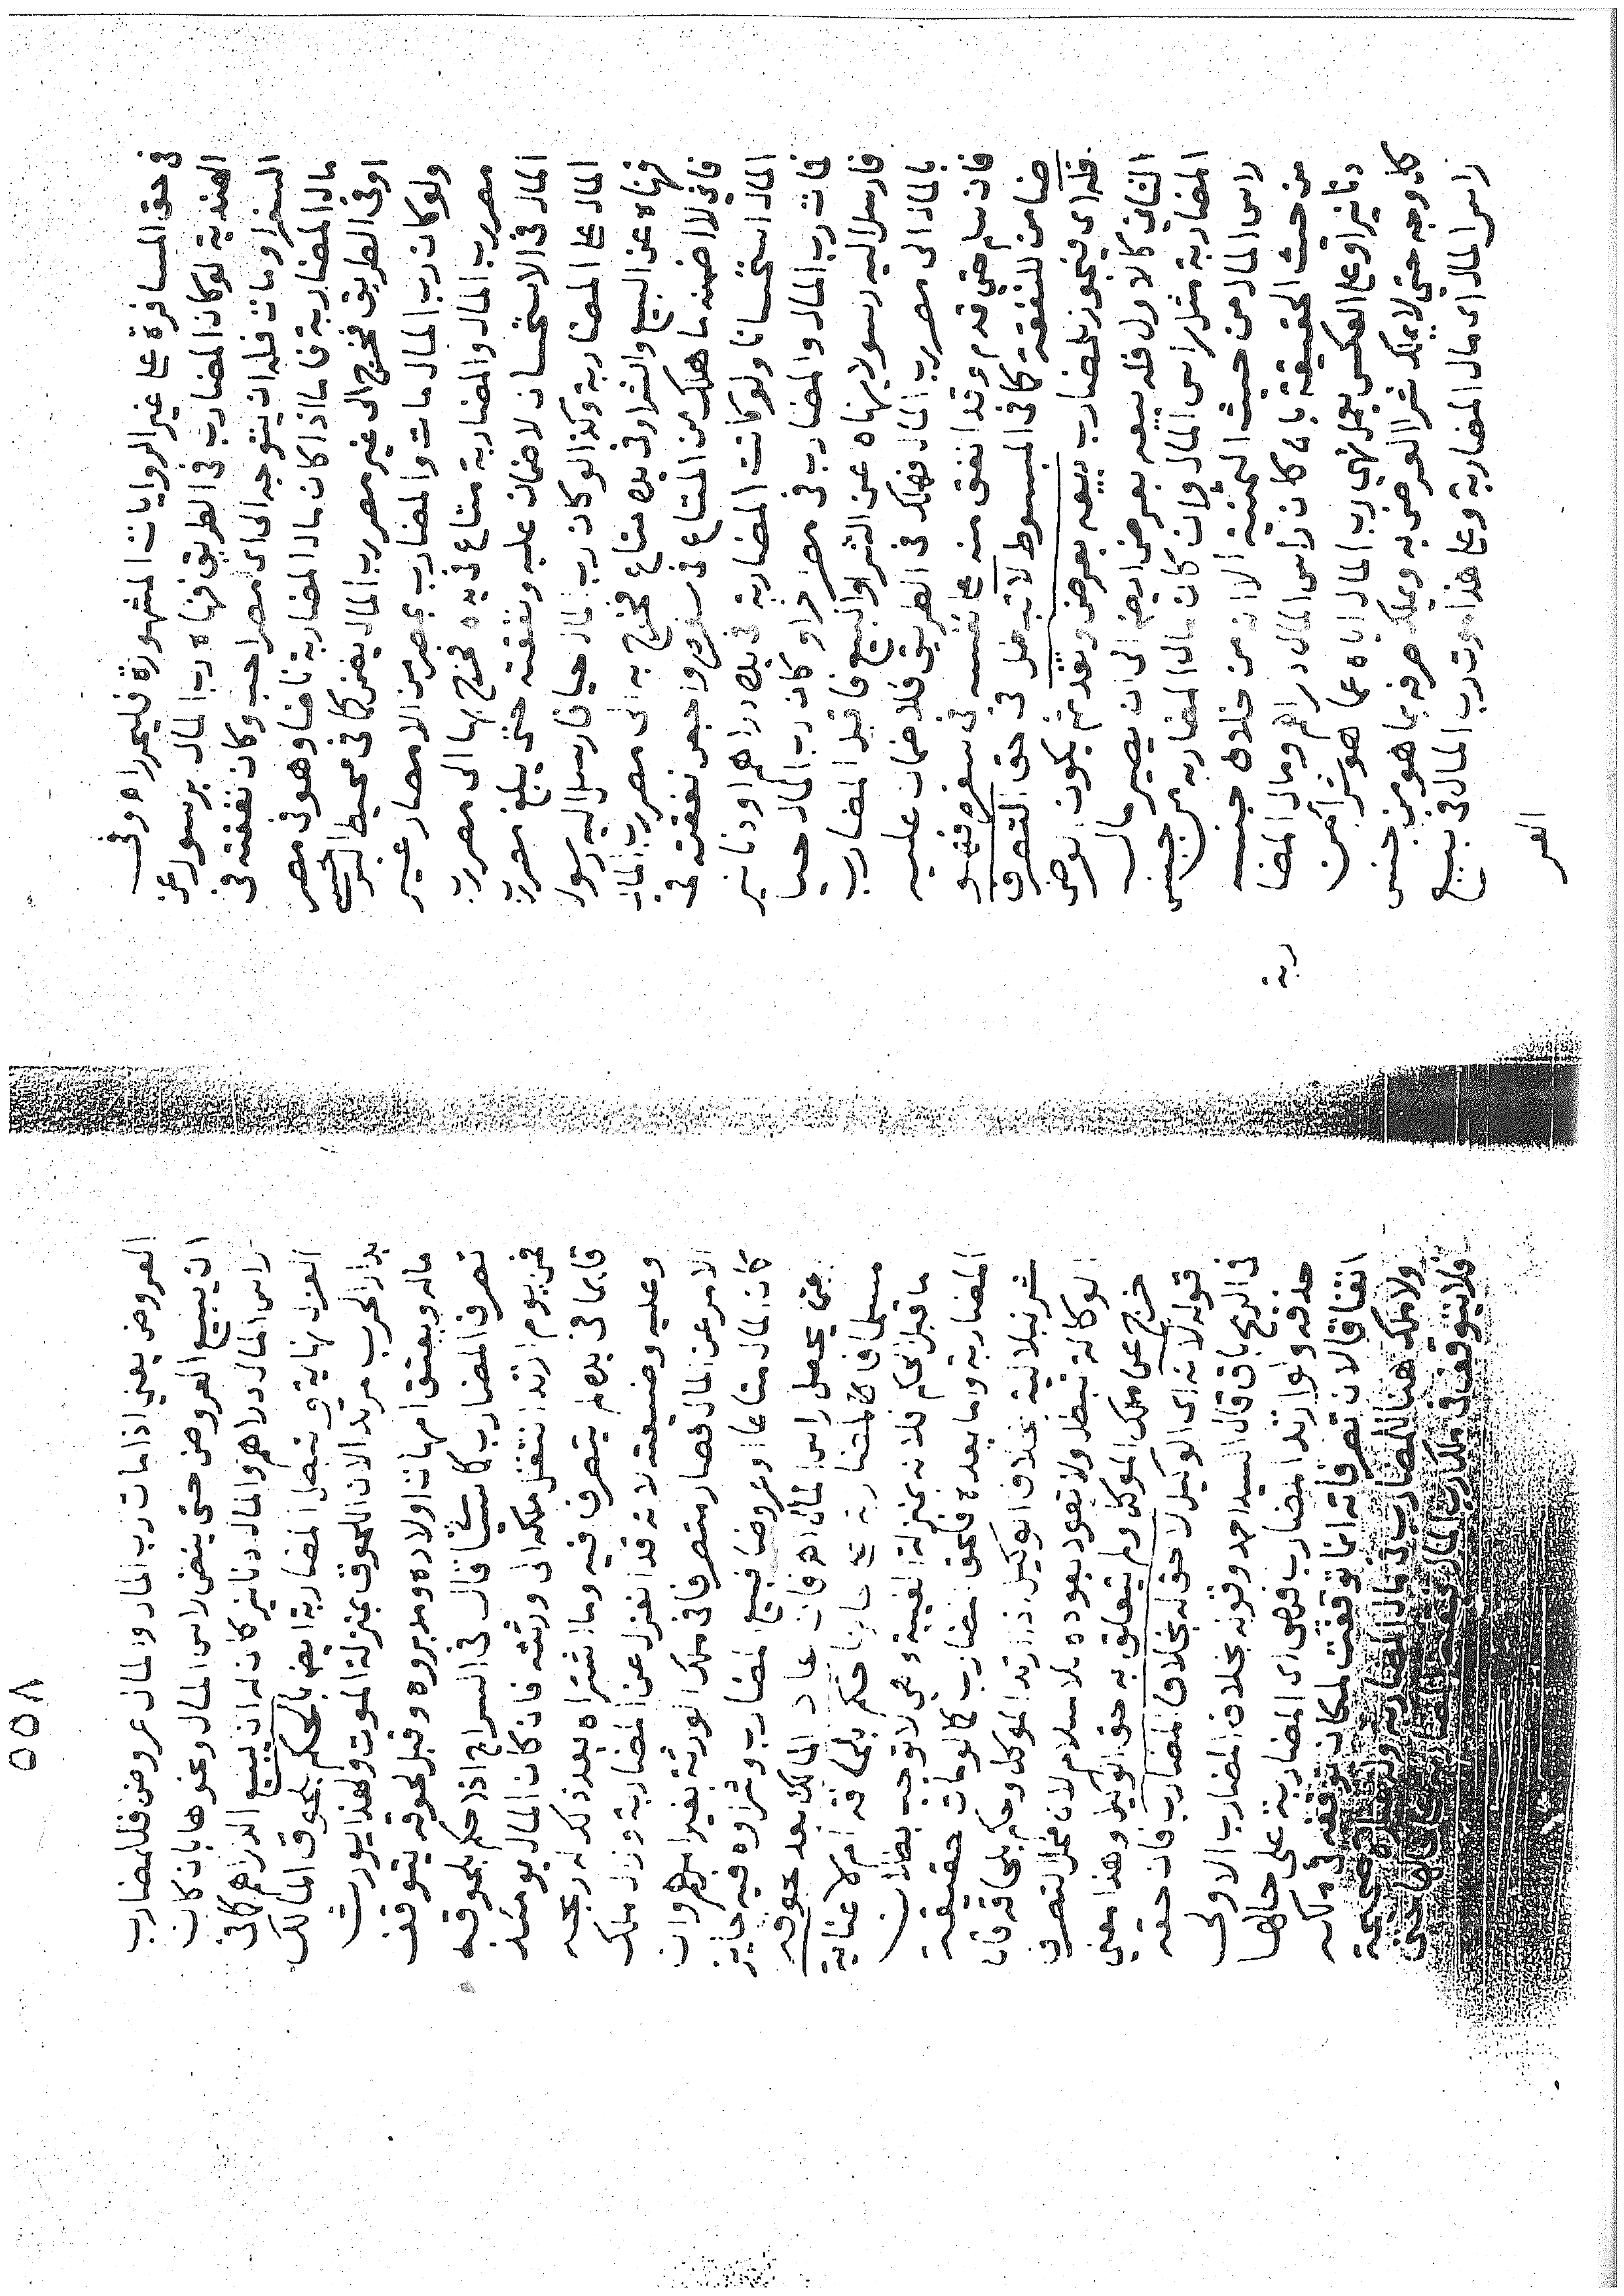 في حق المسافرة على غير الروايات المشهورة فليحرراه وفي
الهندية لو كان المضارب في الطريق فنهاه رب المال برسول عن
السفر او مات فله ان يتوجه الى اي مصر احب وكان نفقته في
مال المضاربة فاما اذا كان مال المضاربة ناضا وهو في مصر
او في الطريق فخرج الى غير مصر رب المال يضمن كما في محيط السرخسي
ولو كان رب المال مات والمضارب بمصر من الامصار غير
مصر رب المال والمضاربة متاع في يده فخرج بها الى مصر رب
المال في الاستحسان لا ضمان عليه ونفقته حتى يبلغ مصر رب
المال على المضاربة وكذا لو كان رب المال حيا فارسل اليه رسولا
فنهاه عن البيع والشرا وفي يده متاع فخرج به الى مصر رب المال
فاني لا اضمنه ما هلك من المتاع في سفره واجعل نفقته في
المال استحسانا ولو كانت المضاربة في يده دراهم او دنانير
فمات رب المال والمضارب في مصر اخر او كان رب المال حيا
فارسل اليه رسولا ينهاه عن الشرا والبيع فاقبل المضارب
بالمال الى مصر رب المال فهلك في الطريق فلا ضمان عليه
فان سلم حتى قدم وقد انفق منه على نفسه في سفره فهو
ضامن للنفقة كما في المبسوط لانه عزل في حق التصرف
فله اي فيجوز للمضارب بيعه بعرض وبعد ثم يكون العرض
الثاني كالاول فله بيعه بعرض ايضا الى ان يصير مال
المضاربة مثل راس المال وان كان مال المضاربة من جنس
راس المال من حيث الثمنية الا انه من خلاف جنسه
من حيث الحقيقة بان كان راس المال دراهم ومال المضا
ربة
دنانير او على العكس يعمل نهي رب المال اياه عما هو شرا من
كل وجه حتى لا يملك شرا العرض به ويملك صرفه بما هو من جنس
راس المال اي مال المضاربة وعلى هذا موت رب المال في بيع
العر
٥٥٨
العروض يعني اذا مات رب المال والمال عروض فللمضارب
ان يبيع العروض حتى ينض راس المال ونحوها بان كان
راس المال دراهم والمال دنانير كان له ان يبيع الدراهم كما في
العزل نهاية وتبطل المضاربة ايضا بالحكم بلحوق المالك
بدار الحرب مرتدا لان اللحوق بمنزلة الموت ولهذا يورث
ماله ويعتق امهات اولاده ومدبروه وقبل لحوقه يتوقف
تصرف المضارب كما سيجيء قال في السراج اذا حكم بلحوقه
فمن يوم ارتد انتقل ملكه الى ورثته فان كان المال يومئذ
قايما في يده لم يتصرف فيه وما اشتراه بعد ذلك له ربحه
وعليه وضيعته لانه قد انعزل عن المضاربة وزال ملك
الامر عن المال فصار متصرفا في ملك الورثة بغير امرهم وان
كان المال متاعا او عروضا فبيع المضارب وشراوه فيه جايز
حتى يحصل راس المال اهـ فان عاد المالك بعد لحوقه
مسلما فالمضاربة على حالها حكم بلحاقه ام لا عناية
ما قبل الحكم فلانه بمنزلة الغيبة وهي لا توجب بطلان
المضاربة واما بعده فلحق المضارب كما لو مات حقيقة
شرنبلالية بخلاف الوكيل اذا ارتد الموكل وحكم بلحاقه فان
الوكالة تبطل ولا تعود بعوده بالاسلام لان محل التصرف
خرج عن ملك الموكل ولم يتعلق به حق الوكيل وهذا معنى
قوله لانه اي الوكيل لا حق له بخلاف المضارب فان حقه
في الربح باق قال السيد احمد وقوله بخلاف المضارب الاولى
حذفه ولو ارتد المضارب فهي اي المضاربة على حالها
اتفاقا لان تصرفاته انما توقفت لمكان توقفه في ملكه
ولا ملك هنا للمضارب في مال المضاربة وله عبارة صحيحة
فلا توقف في ملك رب المال فبقيت المضاربة على حالها حتى